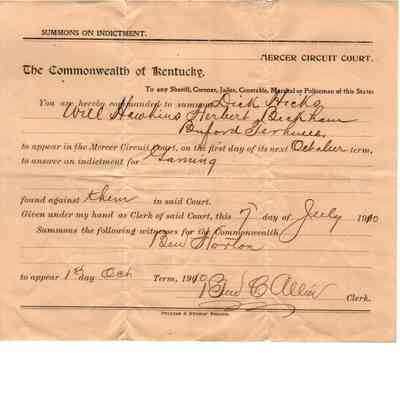 SUMMONS ON INDICTMENT.
MERCER CIRCUIT COURT.
The Commonwealth of Kentucky,
To any Sheriff, Coroner, Jailer, Constable, Marshal or Policeman of this State:
You are hereby commanded to summon Dick Hicks
Will Hawkins Herbert Beckham
Buford Terhune
to appear in the Mercer Circuit Court, on the first day of its next October term,
to answer an indictment for Gaming
found against them in said Court.
Given under my hand as Clerk of said Court, this 7 day of July 1910
Summons the following witnesses for the Commonwealth
Ben Horton
to appear 1st day Oct Term, 1910
Ben C Allin Clerk.